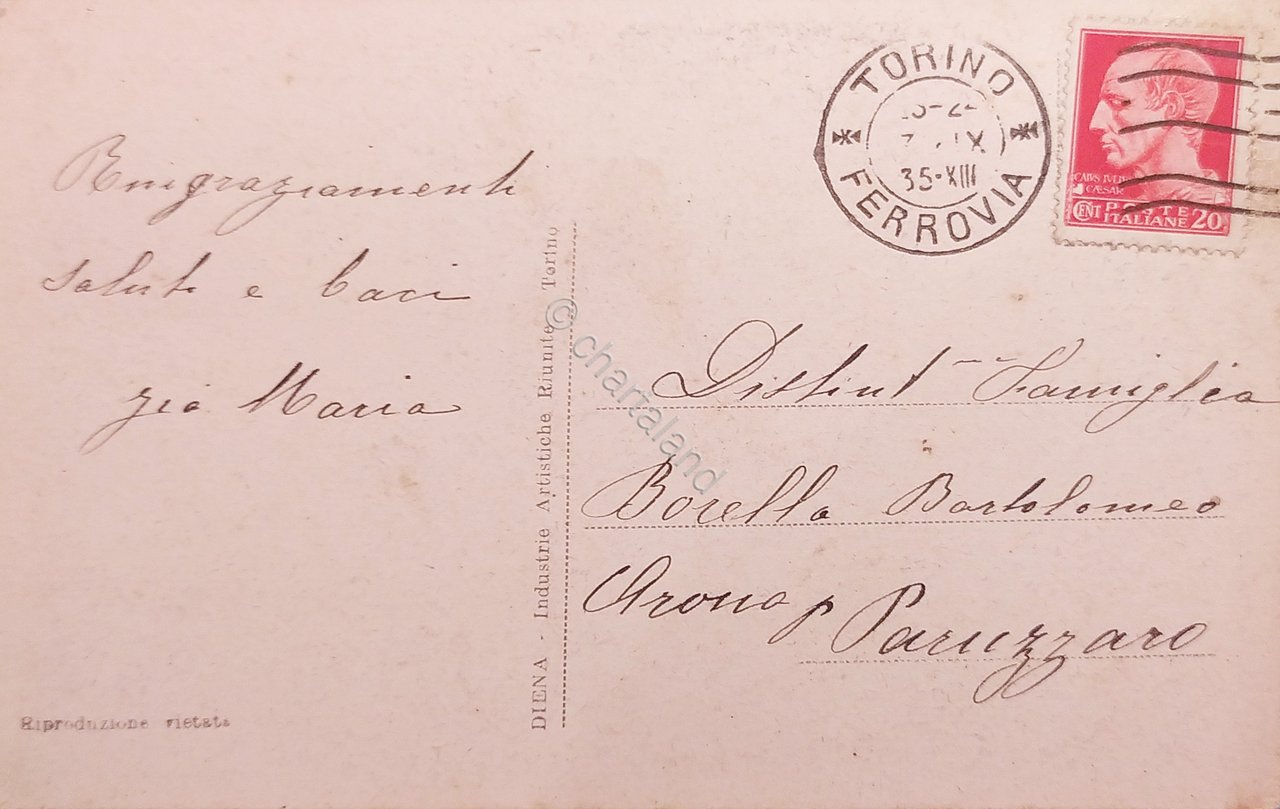 Ringraziamenti
saluti e baci
zia Maria
Riproduzione vietata
DIENA - Industrie Artistiche Riunite Torino
© chartaland
TORINO
IX
35-XIII
FERROVIA
CAIVS IVLIVS
CÆSAR
CENT POSTE
ITALIANE 20
Distint Famiglia
Borella Bartolomeo
Arona p Paruzzaro